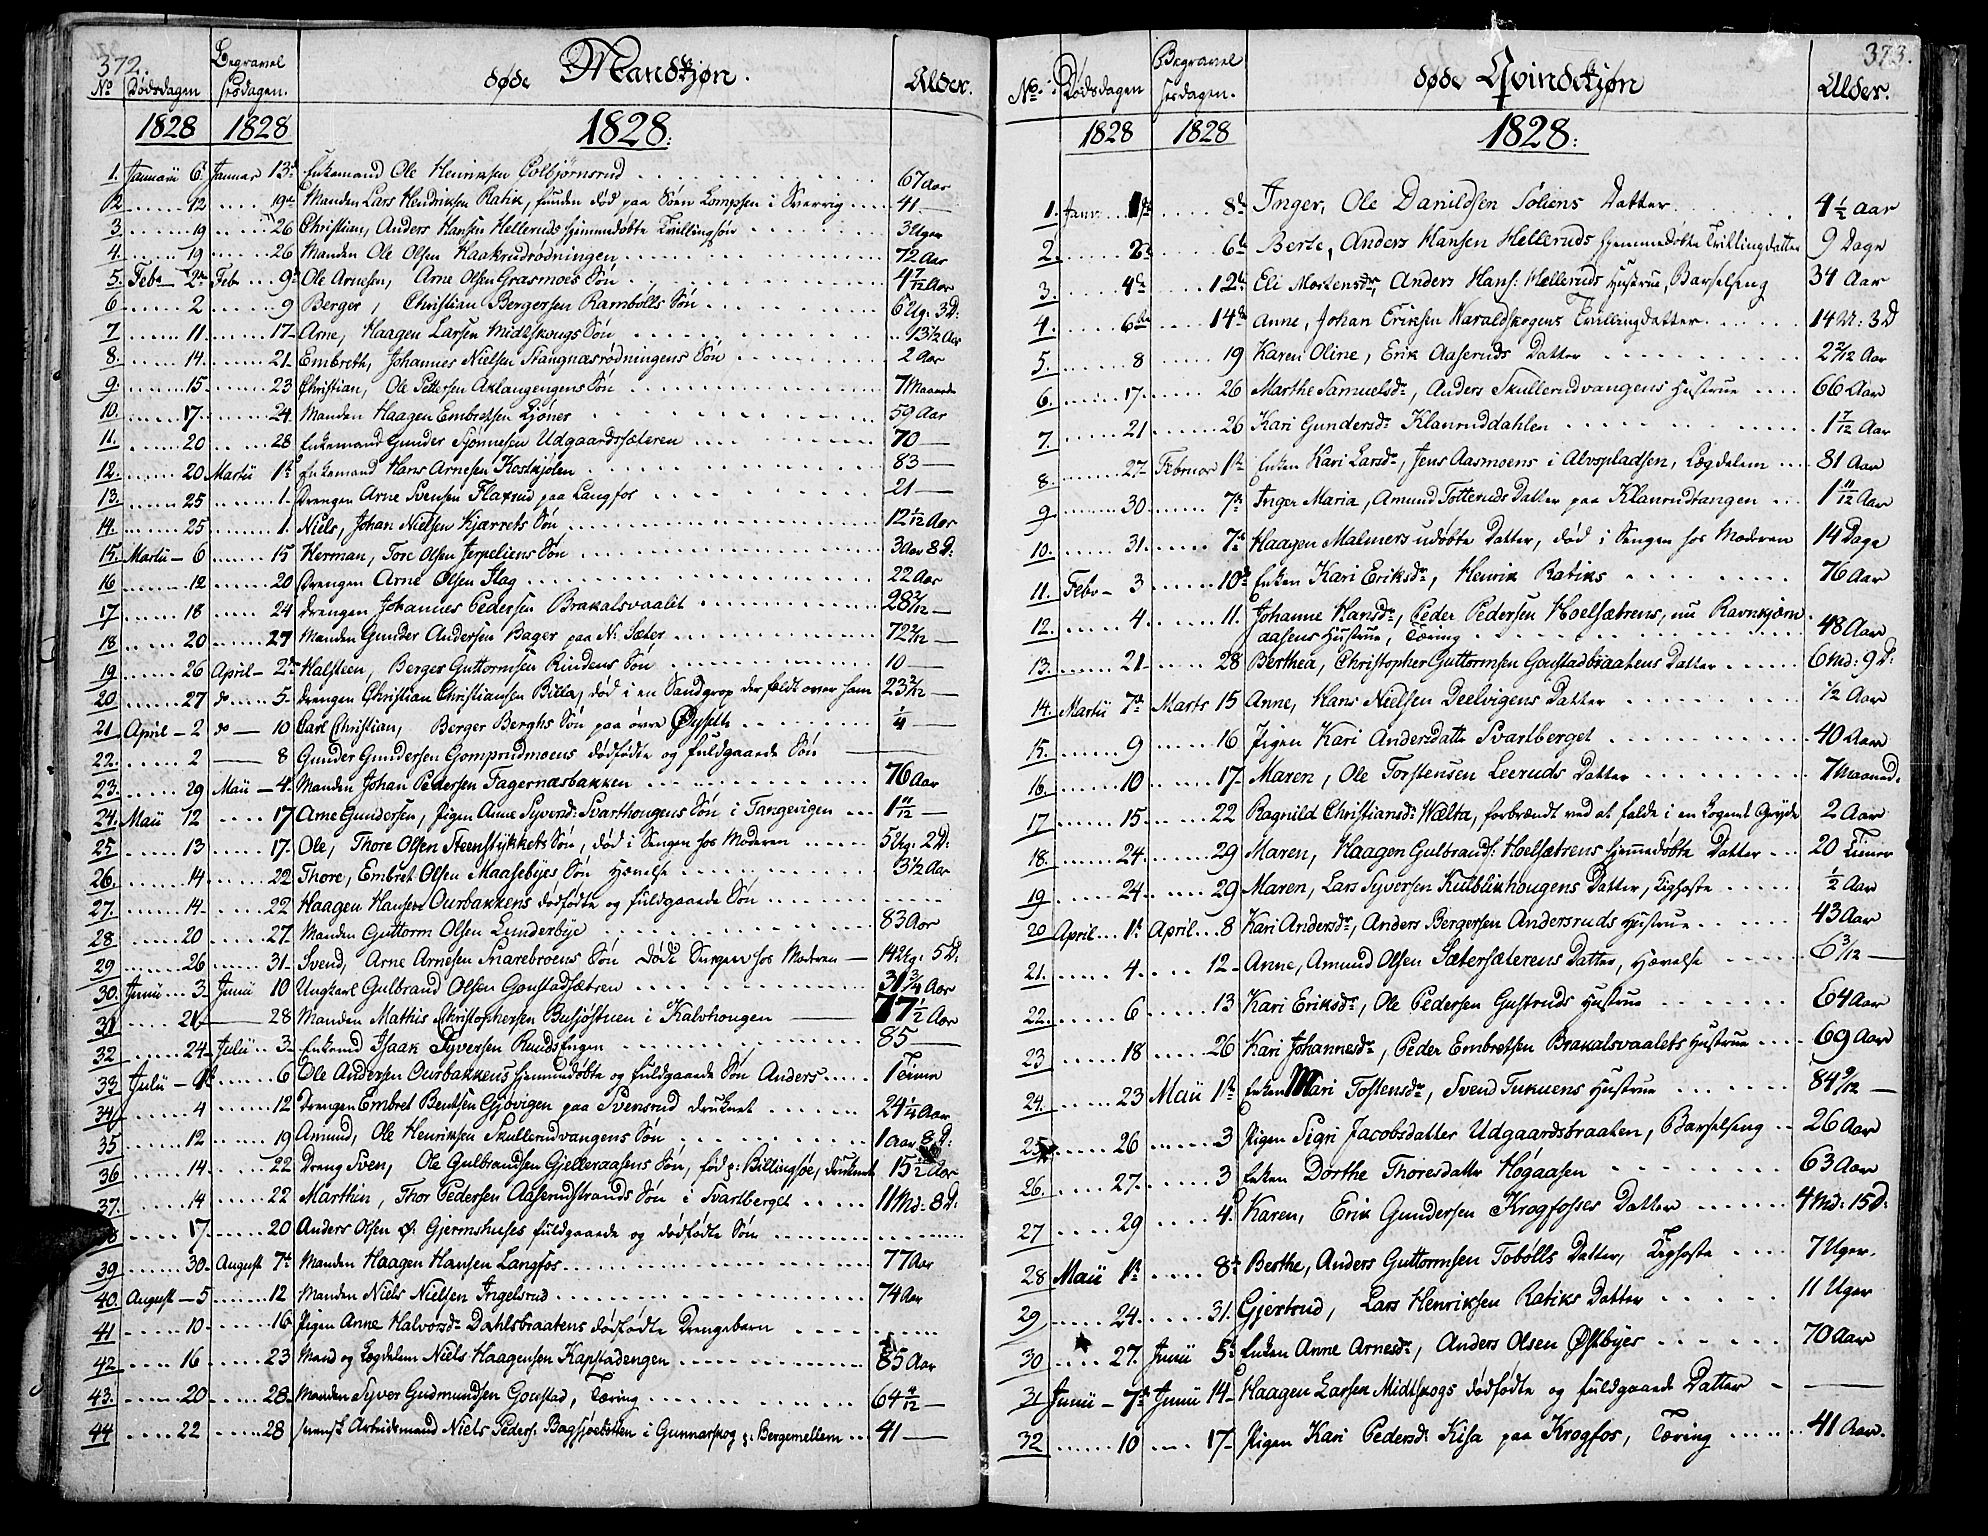 372.
Begravel
døde Mandkjøn.
Alder.
No Dødsdagen sesdagen.
1828 1828 1828:
1. Januarii 6. Januar 13. Enkemand Ole Henriksen Colbjørnsrud 67 Aar
2 12 19 Manden Lars Hendriksen Ratik, funden død paa Søen Lompsen i Sverrig 41
3 19 26 Christian, Anders Hansen Helleruds hjemmedøbte Tvillingsøn 3 Uger
4. 19 26 Manden Ole Olsen Haakrudrødningen 72 Aar
5. Febr 2 Febr 9 Ole Arnesen, Arne Olsen Grasmoes Søn 4 7/12 Aar
6 2 9 Berger, Christian Bergersen Rambølls Søn 6 Ug. 3 D.
7 11. 17 Arne, Haagen Larsen Midtskougs Søn 13 1/2 Aar
8. 14. 21. Embreth, Johannes Nielsen Stangnæsrødningens Søn 2 Aar
9. 15. 23 Christian, Ole Pettersen Aklangengens Søn 7 Maaneder
10. 17. 24. Manden Haagen Embretsen Linner 59 Aar
11. 20 28 Enkemand Gunder Sjønnesen Udgaardssæteren 70
12. 20 Martii 1 Enkemand Hans Arnesen Kostkjølen 83
13. 25 1. Drengen Arne Svensen Flaxrud paa Langfos 21
14. 25 1. Niels, Johan Nielsen Kjærrets Søn 12 1/12 Aar
15. Martii 6 15 Herman, Tore Olsen Jerpeliens Søn 3 Aar 8 D:
16 12 20 Drengen Arne Olsen Hag 22 Aar
17 18 24 Drengen Johannes Pedersen Brakalsvaalet 28 2/12
18 20 27 Manden Gunder Andersen Bager paa N. Sæter 72 2/12
19 26 April 2 Halsteen, Berger Guttormsen Rindens Søn 10
20 27 do 5 Drengen Christian Christiansen Billa, død i en Sandgrop der faldt over ham 23 2/12
21 April 2 do 10 Carl Christian, Berger Berghs Søn paa øvre Øyset 1/4
22. 2 8 Gunder Gundersen Gomprudmoens dødfødte og fuldgaaede Søn
23. 29 Maii 4. Manden Johan Pedersen Fagernæsbakken 76 Aar
24. Maii 12 17 Arne Gundersen, Pigen Anne Syversd: Svarthougens Søn i Tangevigen 1 11/12
25 13 17. Ole, Thore Olsen Steenstykkets Søn, død i Sengen hos Moderen 5 Ug. 2 D.
26. 14 22 Thore, Embret Olsen Maasebyes Søn Hævelse 3 1/2 Aar
27. 14 22 Haagen Hansen Ourbakkens dødfødte og fuldgaaede Søn
28 20 27. Manden Guttorm Olsen Lunderbye 83 Aar
29 26 31 Svend, Arne Arnesen Snarebroens Søn Død i Sengen hos Moderen 14 Ug. 5 D.
30. Junii 3 Junii 10 Ungkarl Gulbrand Olsen Goustadsætren 31 3/4 Aar
31 21 28 Manden Mathis Christophersen Busjøstuen i Kalvhougen 77 1/2 Aar
32 24 Julii 3 Enkemd Isaak Syversen Ruudsengen 85
33 Julii 1 6 Ole Andersen Ourbakkens hjemmedøbte og fuldgaaede Søn Anders 1 Time
34 4 12 Drengen Embret Bentsen Gjøvigen paa Svensrud druknet 24 1/4 Aar
35 12 19 Amund, Ole Henriksen Skullerudvangens Søn 1 Aar 8 D.
36 14 22 Dreng Sven, Ole Gulbrandsen Gjelleraasens Søn, fød p: Billingsøe, druknet 15 Aar
37. 14 22 Marthin, Thor Pedersen Aaserudstrands Søn i Svartberget 11 Md. 8 D.
38 17. 20 Anders Olsen Ø. Gjermshuses fuldgaaede og dødfødte Søn
39 30 August 7 Manden Haagen Hansen Langfos 77 Aar
40. August 5 12 Manden Niels Nielsen Ingelsrud 74 Aar
41 10 16 Pigen Anne Halvorsd: Dahlsbraatens dødfødte Drengebarn
42 16 23 Mand og Lægdelem Niels Haagensen Kapstadengen 85 Aar
43. 20 28 Manden Syver Gudmundsen Goustad, Tæring 64 4/12
44 22 28 svensk Arbeidsmand Niels Peders: Bagsjøebotten i Gunnarskog p: Bergemellem 41
373.
Begravel
døde Qvindekjøn
No. Dødsdagen sesdagen. Alder.
1828 1828 1828:
1. Janr. 1 8 Inger, Ole Danildsen Søliens Datter 4 1/2 Aar
2. 2 6 Berte, Anders Hansen Helleruds hjemmedøbte Tvillingdatter 9 Dage
3. 4 12 Eli Mortensdr, Anders Hans: Helleruds Hustrue, Barselseng 34 Aar
4. 6 14 Anne, Johan Eriksen Haraldskogens Tvillingdatter 14 U: 3 D
5. 8 19 Karen Oline, Erik Aaseruds Datter 2 2/12 Aar
6. 17. 26 Marthe Samuelsdr, Anders Skullerudvangens Hustrue 66 Aar
7. 21 26 Kari Gundersdr Klanruddahlen 1 7/12 Aar
8. 27 Februar 1 Enken Kari Larsdr, Jens Aasmoens i Alvspladsen, Lægdelem 81 Aar
9 30 7 Inger Maria, Amund Totteruds Datter paa Klanrudtangen 1 11/12 Aar
10. 31 7 Haagen Malmers udøbte Datter, død i Sengen hos Moderen 14 Dage
11. Febr 3 10 Enken Kari Eriksdr, Henrik Ratiks 76 Aar
12. 4. 11. Johanne Hansdr, Peder Pedersen Hoelsætrens, nu Ravnkjøn
aasens Hustrue, Tæring 48 Aar
13. 21 28 Berthea, Christopher Guttormsen Goustadbraatens Datter 6 Md: 9 D:
14. Martii 7 Marts 15 Anne, Hans Nielsen Deelvigens Datter 1/2 Aar
15. 9 16 Pigen Kari Andersdatter Svartberget 40 Aar
16. 10 17 Maren, Ole Torstensen Leeruds Datter 7 Maaned.
17 15 22 Ragnild Christiansdr Wælta, forbrændt ved at falde i en kogende Gryde 2 Aar
18. 24. 29 Maren, Haagen Gulbrands: Hoelsætrens hjemmedøbte Datter 20 Timer
19 24. 29 Maren, Lars Syversen Kulblikhougens Datter, Kighoste 1/2 Aar
20 April 1 April 8 Kari Andersdr, Anders Bergersen Andersruds Hustrue 43 Aar
21. 4. 12 Anne, Amund Olsen Sætersæterens Datter, Hævelse 6 3/12
22. 6 13 Kari Eriksdr, Ole Pedersen Gustruds Hustrue 64 Aar
23 18 26 Kari Johannesdr, Peder Embretsen Brakalsvaalets Hustrue 69 Aar
24. 23 Maii 1 Enken Mari Tostensdr, Svend Tukuens Hustrue 84 9/12
25 26 3 Pigen Sigri Jacobsdatter Udgaardsbraaten, Barselseng 26 Aar
26. 27. 3 Enken Dorthe Thoresdatter Høgaasen 63 Aar
27 29 4. Karen, Erik Gundersen Krogfosses Datter 4 Md: 15 D:
28 Maii 1 8 Berthe, Anders Guttormsen Tobølls Datter, Kighoste 7 Uger.
29 24. 31. Gjertrud, Lars Henriksen Ratiks Datter 11 Uger
30 27. Junii 5 Enken Anne Arnesdr, Anders Olsen Østbyes 70 Aar
31 Junii 7 Junii 14 Haagen Larsen Midtskogs dødfødte og fuldgaaede Datter
32 10 17 Pigen Kari Pedersdr Kisa paa Krogfos, Tæring 41 Aar.